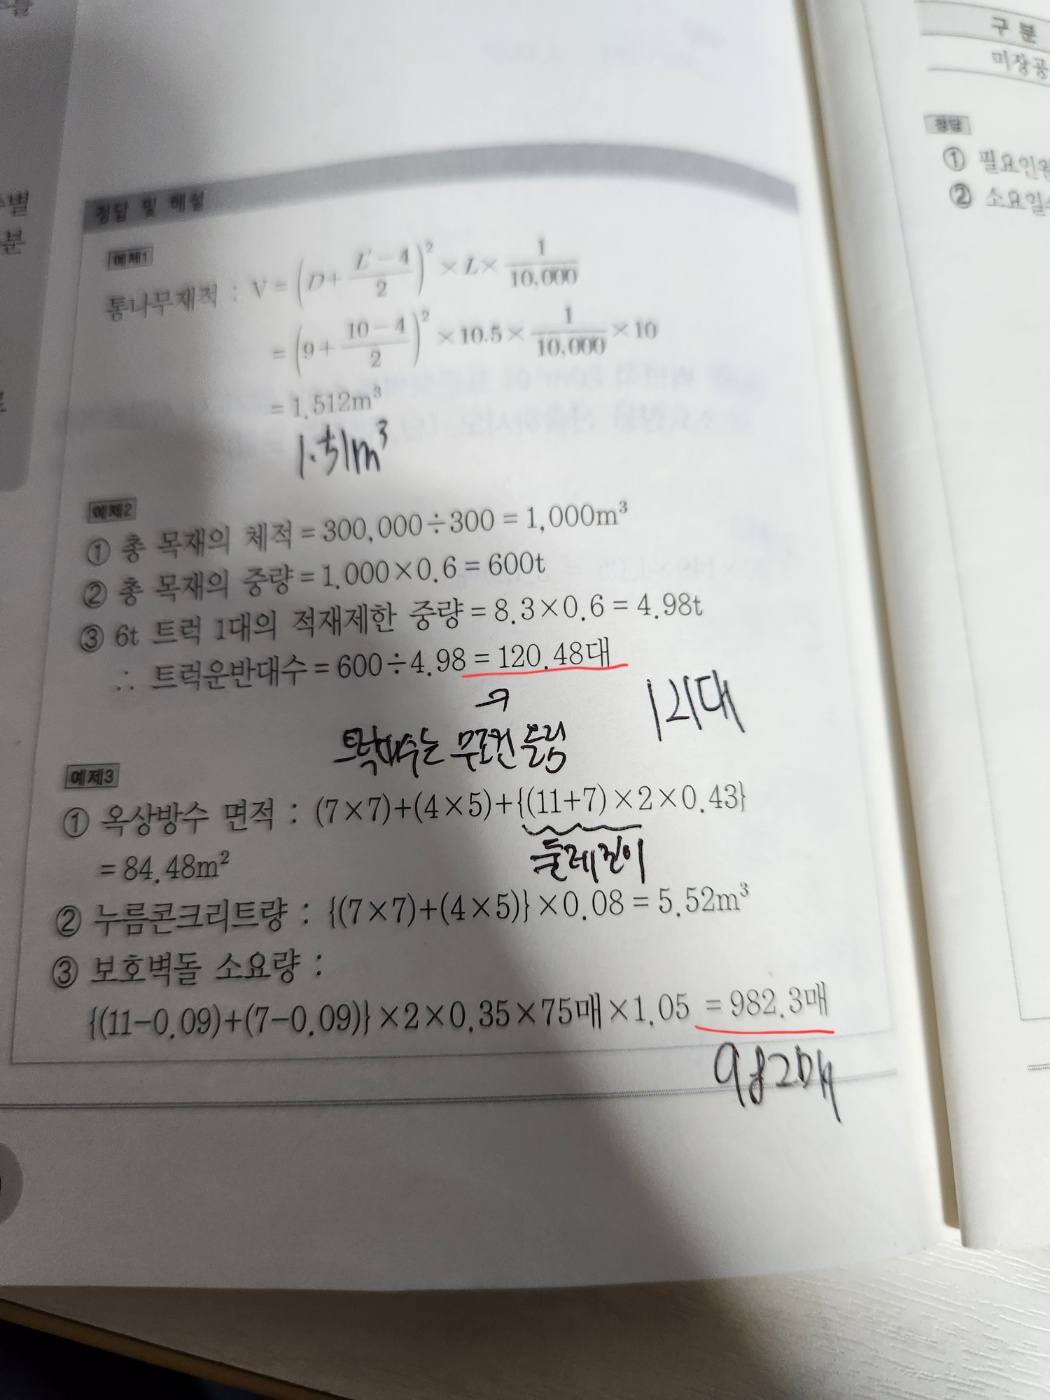 정답 및 해설
예제1
통나무재적 : V = (D + (L′ − 4)/2)² × L × 1/10,000
= (9 + (10 − 4)/2)² × 10.5 × 1/10,000 × 10
= 1.512m³
1.51m³
예제2
① 총 목재의 체적 = 300,000 ÷ 300 = 1,000m³
② 총 목재의 중량 = 1.000 × 0.6 = 600t
③ 6t 트럭 1대의 적재제한 중량 = 8.3 × 0.6 = 4.98t
∴ 트럭운반대수 = 600 ÷ 4.98 = 120.48대
121대
트럭대수는 무조건 올림
예제3
① 옥상방수 면적 : (7×7)+(4×5)+{(11+7)×2×0.43}
= 84.48m²
둘레길이
② 누름콘크리트량 : {(7×7)+(4×5)}×0.08 = 5.52m³
③ 보호벽돌 소요량 :
{(11−0.09)+(7−0.09)}×2×0.35×75매×1.05 = 982.3매
982매
구 분
미장공
정답
① 필요인원
② 소요일